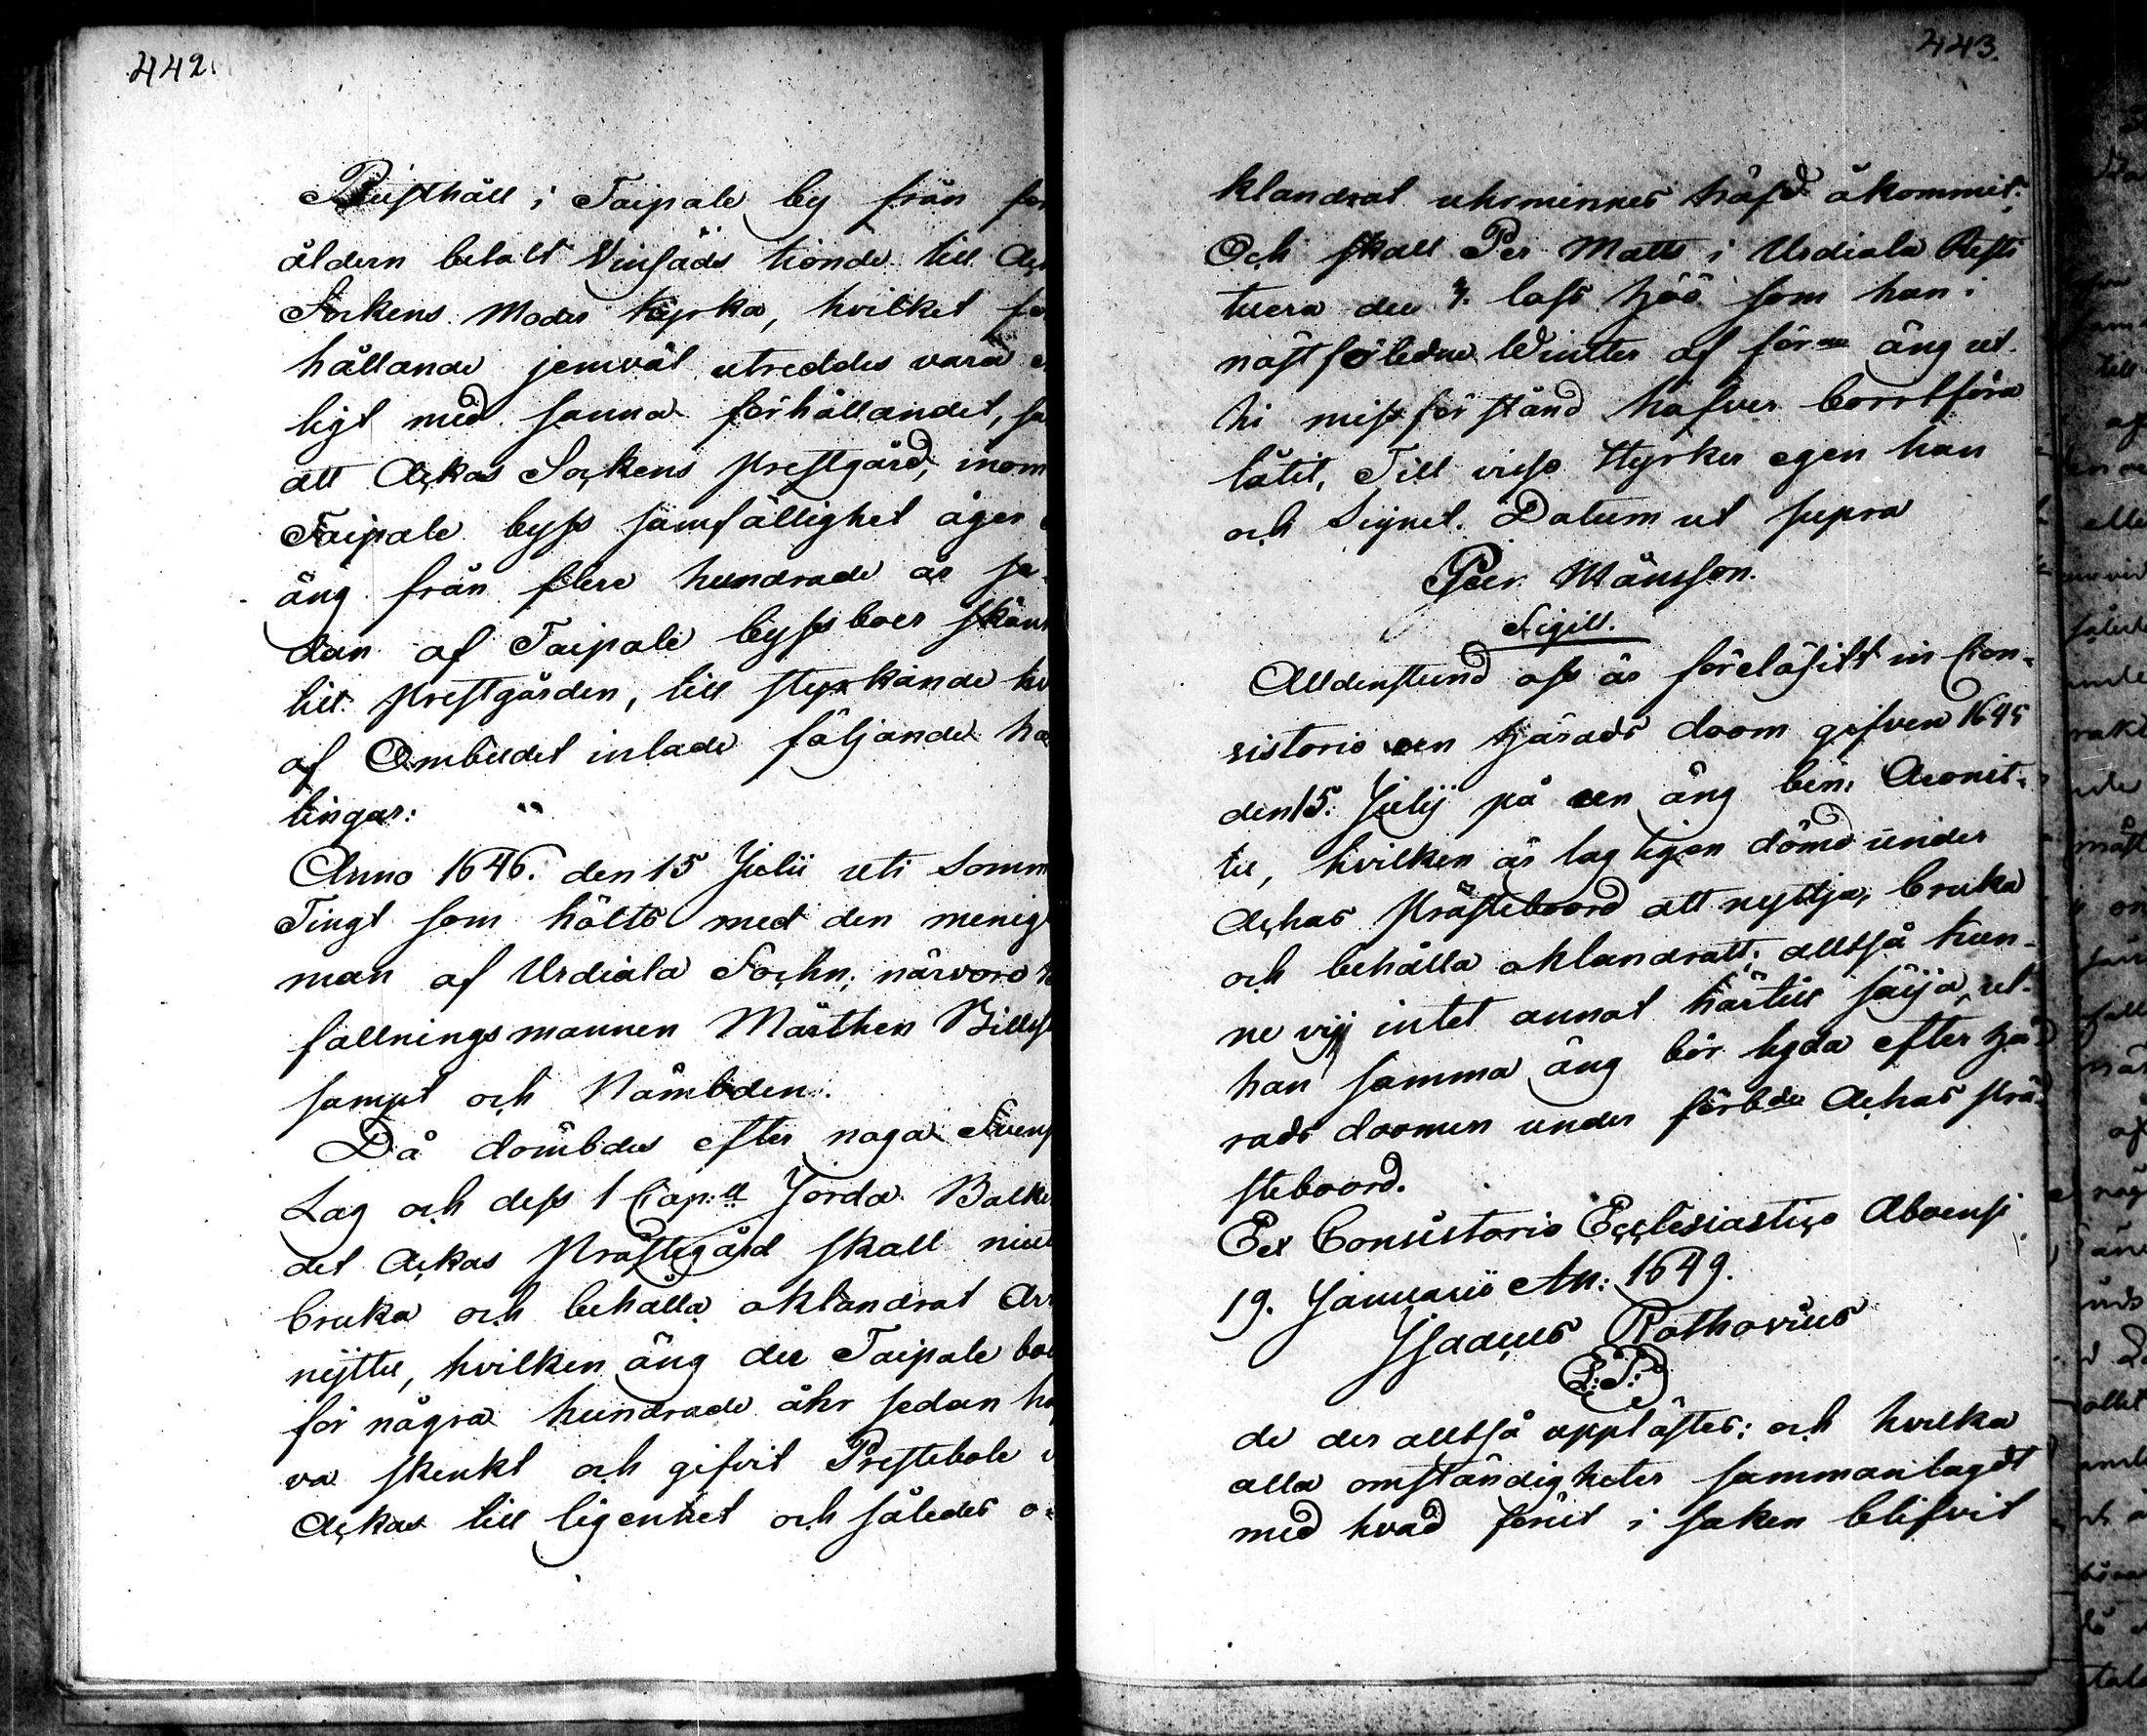 442.
Rusthåll i Taipale by från for
åldern betalt Vinsäds tionde till Ac
Sockens Moder kyrka, hvilket för
hållande jemväl utreddes vara
ligt med sanna förhållandet, sa
att Ackas Sockens Prestgård, inom
Taipale byss samfällighet äger
äng från flere hundrade år se-
dan af Taipale byssboer skän
till Prestgården, till styrkande
af Ombudet inlade följande ha
lingar:
Anno 1646. den 15 Julii uti Somm
Tingt som hölts med den menig
man af Urdiala Sochn, närvaro
fallningsmannen Mårthen
sampt och Nämbden.
Då dömbdes efter noga Svens
Lag och dess 1 Cap:ll Jorda Balke
det Ackas Prästegård skall niut
bruka och behålla oklandrat Ar
nijttu, hvilken äng der Taipale bo
för några hundrade åhr sedan ha
va skenkt och gifvit Prestebole
Ackas till ligenhet och således o-
443.
klandrat uhrminnes häfd åkommit;
Och skall Per Matts i Urdiala Resti
tuera de 4. lass höö som han i
näst förledne Wintter af för:ne äng ut-
hi missförstånd hafver bortföra
låtit, Till visso styrker egen han
och Signet. Datum ut supra
Peer Månsson.
Sigill.
Alldenstund oss är föreläsitt in Con-
sistorio een Härads doom gifven 1645
den 15. Julij på een äng ben: Aronit-
tu, hvilken är lagligen dömd under
Achas Prästeboord att nyttja, bruka
och behålla oklandratt; alltså kun-
ne vij intet annat härtill säija, ut-
han samma äng bör lyda efter Hä-
rads doomen under förb:de Achas Prä-
steboord.
Ex Consistorio Ecclesiastico Aboensi
19. Januarii An: 1649.
Isaacus Rothovius
L:S:
de der alltså upplästes; och hvilka
alla omständigheter sammanlagdt
med hvad förut i saken blifvit